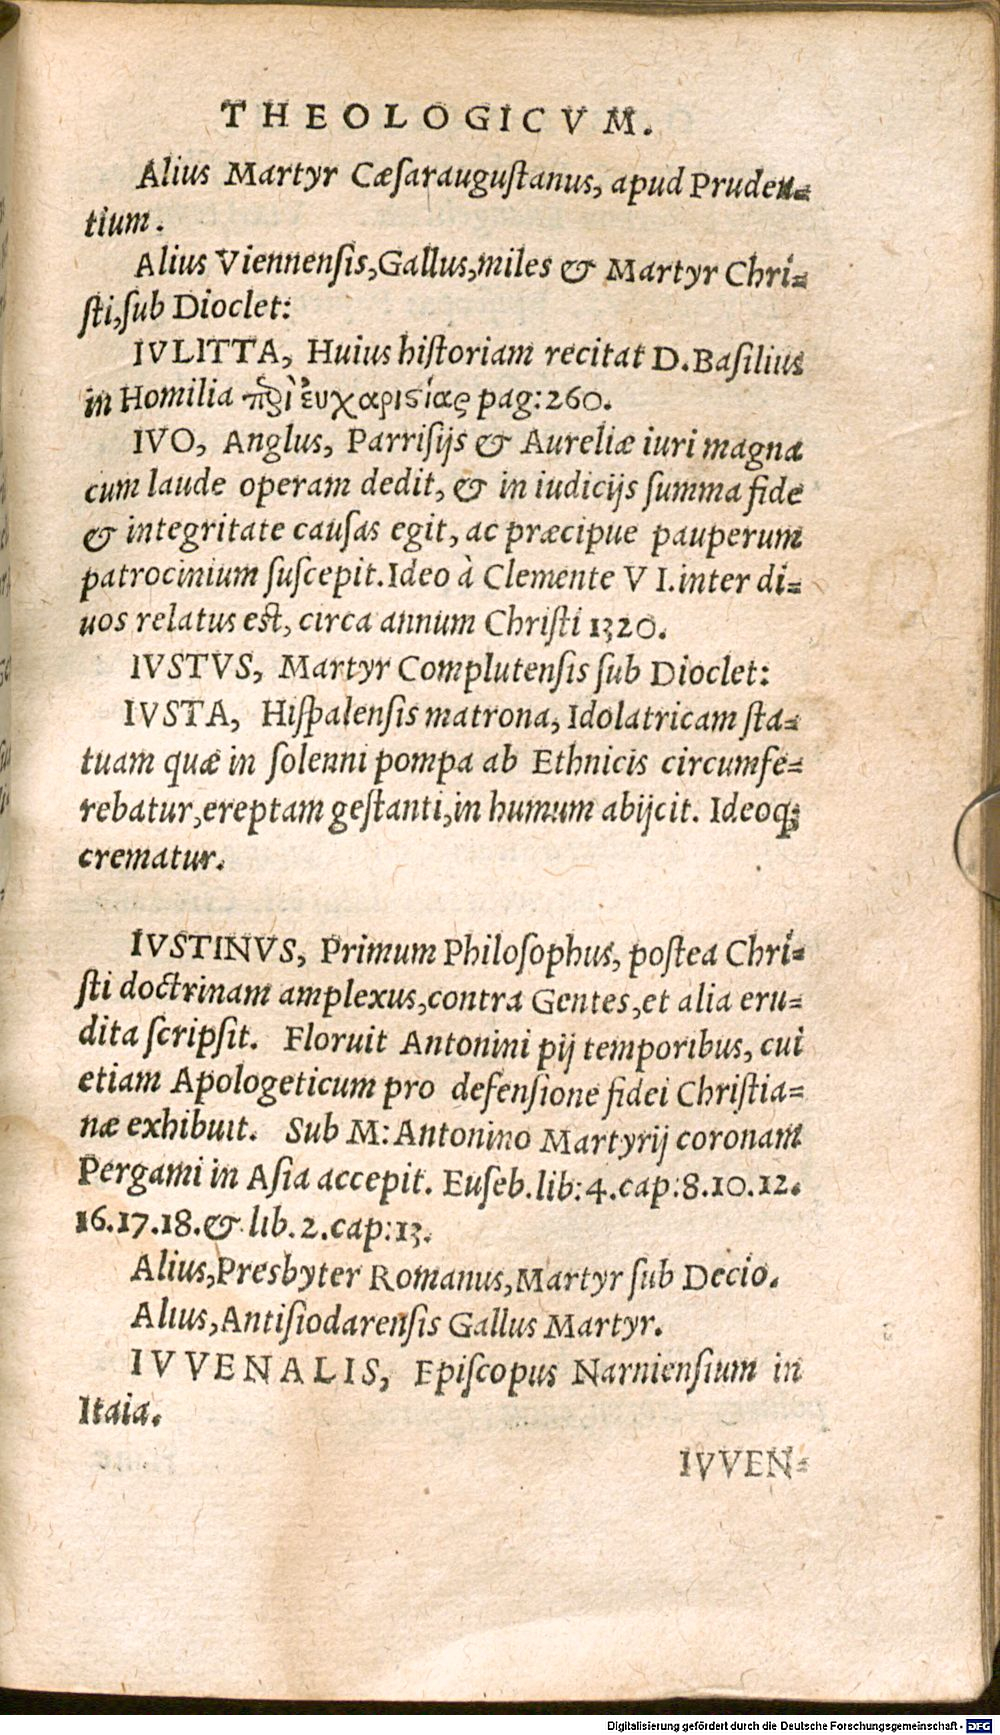 THEOLOGICVM.
Alius Martyr Cæſarauguſtanus, apud Pruden-
tium.
Alius Viennenſis, Gallus, miles & Martyr Chri-
ſti, ſub Dioclet:
IVLITTA, Huius hiſtoriam recitat D. Baſilius
in Homilia πϱὶ ἐυχαριςίας pag: 260.
IVO, Anglus, Parriſijs & Aureliæ iuri magna
cum laude operam dedit, & in iudicijs ſumma fide
& integritate cauſas egit, ac præcipue pauperum
patrocinium ſuſcepit. Ideo à Clemente V I. inter di-
uos relatus eſt, circa annum Chriſti 1320.
IVSTVS, Martyr Complutenſis ſub Dioclet:
IVSTA, Hiſpalenſis matrona, Idolatricam ſta-
tuam quæ in ſolenni pompa ab Ethnicis circumfe-
rebatur, ereptam geſtanti, in humum abijcit. Ideoq́;
crematur.
IVSTINVS, Primum Philoſophus, poſtea Chri-
ſti doctrinam amplexus, contra Gentes, et alia eru-
dita ſcripſit. Floruit Antonini pij temporibus, cui
etiam Apologeticum pro defenſione fidei Chriſtia-
næ exhibuit. Sub M: Antonino Martyrij coronam
Pergami in Aſia accepit. Euſeb. lib: 4. cap: 8. 10. 12.
16. 17. 18. & lib. 2. cap: 13.
Alius, Presbyter Romanus, Martyr ſub Decio.
Alius, Antiſiodarenſis Gallus Martyr.
IVVENALIS, Epiſcopus Narnienſium in
Itaia.
IVVEN-
Digitalisierung gefördert durch die Deutsche Forschungsgemeinschaft - DFG